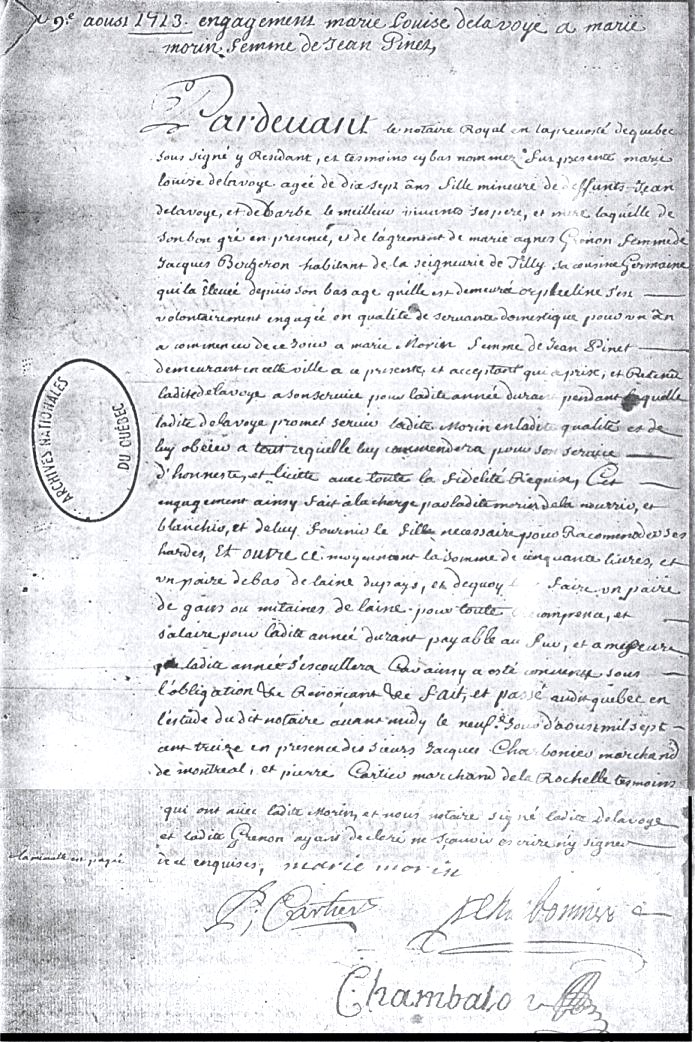 9.e aoust 1713. engagement marie Louise delavoye a marie
morin femme de Jean Pinet,
Pardevant le notaire Royal en la prevosté de quebec
sous signé y Residant, et tesmoins cy bas nommez fut presente marie
Louise delavoye agée de dix sept ans fille mineure de deffunts Jean
delavoye, et de barbe le meilleur vivants ses pere, et mere laquelle de
son bon gré en presence, et de lagrement de marie agnes Grenon femme de
Jacques Bergeron habitant de la seigneurie de Tilly sa cousine Germaine
qui la Elevée depuis son bas age quille est demeurée orpheline s'en
volontairement engagée en qualité de servante domestique pour un an
a commencer de ce Jour a marie Morin femme de Jean Pinet
demeurant en cette ville a ce presente, et acceptant qui a prise, et Retenu
ladite delavoye a son service pour ladite année durant pendant laquelle
ladite delavoye promet servir ladite Morin en ladite qualité et de
luy obeir a tout ce quelle luy commendera pour son service
d'honneste, et licitte avec toute la fidelité Requise, Cet
engagement ainsy fait a la charge par ladite morin de la nourrir, et
blanchir, et de luy fournir le fille necessaire pour Racomoder ses
hardes, Et outre ce moyennant la somme de cinquante livres, et
un paire de bas de laine du pays, et de quoy faire un paire
de gans ou mitaines de laine pour toute recompence, et
salaire pour ladite année durant payable au fur, et a mesure
que ladite année s'escoullera Car ainsy a esté convenu sous
l'obligation &c Renonçant &c fait, et passé audit quebec en
l'estude du dit notaire avant midy le neuf.e Jour d'aoust mil sept
cent treize en presence des sieurs Jacques Charbonier marchand
de montreal, et pierre Cartier marchand de la Rochelle tesmoins
qui ont avec ladite Morin, et nous notaire signé ladite Delavoye
et ladite Grenon ayant declaré ne sçavoir escrire n'y signer
de ce enquises, marie morin
la minutte en papié
P. Cartier
J Charbonnier
Chambalon
ARCHIVES NATIONALES
DU QUÉBEC